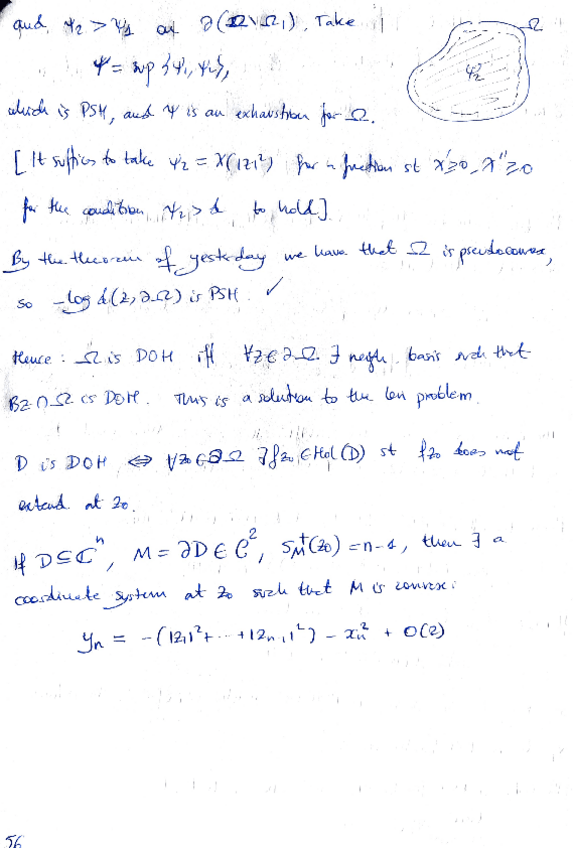 and ψ₂ > ψ₁ on ∂(Ω\Ω₁). Take
Ω
ψ = sup {ψ₁, ψ₂},
ψ₂
which is PSH, and ψ is an exhaustion for Ω.
[It suffices to take ψ₂ = χ(|z|²) for a function st χ'≥0, χ''≥0
for the condition ψ₂ > to hold].
By the theorem of yesterday we have that Ω is pseudoconvex,
so -log d(z, ∂Ω) is PSH. ✓
Hence: Ω is DOH iff ∀z∈∂Ω ∃ neigh. basis such that
Bz∩Ω is DOH. This is a solution to the Levi problem.
D is DOH ⇔ ∀z₀∈∂Ω ∃f_{z₀}∈Hol(D) st f_{z₀} does not
extend at z₀.
If D⊆ℂⁿ, M = ∂D ∈ C², S_M⁺(z₀) = n-1, then ∃ a
coordinate system at z₀ such that M is convex:
yₙ = -(|z₁|²+ ⋯ +|zₙ₋₁|²) - xₙ² + O(2)
56